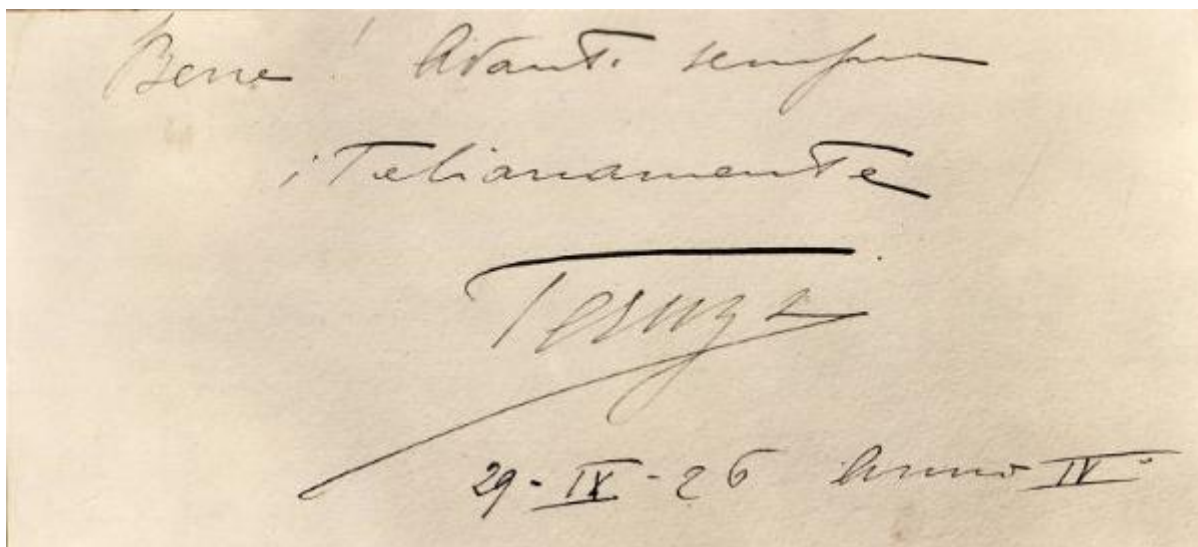 Bene! Avanti sempre
italianamente
Teruzzi
29-IX-26 Anno IV°